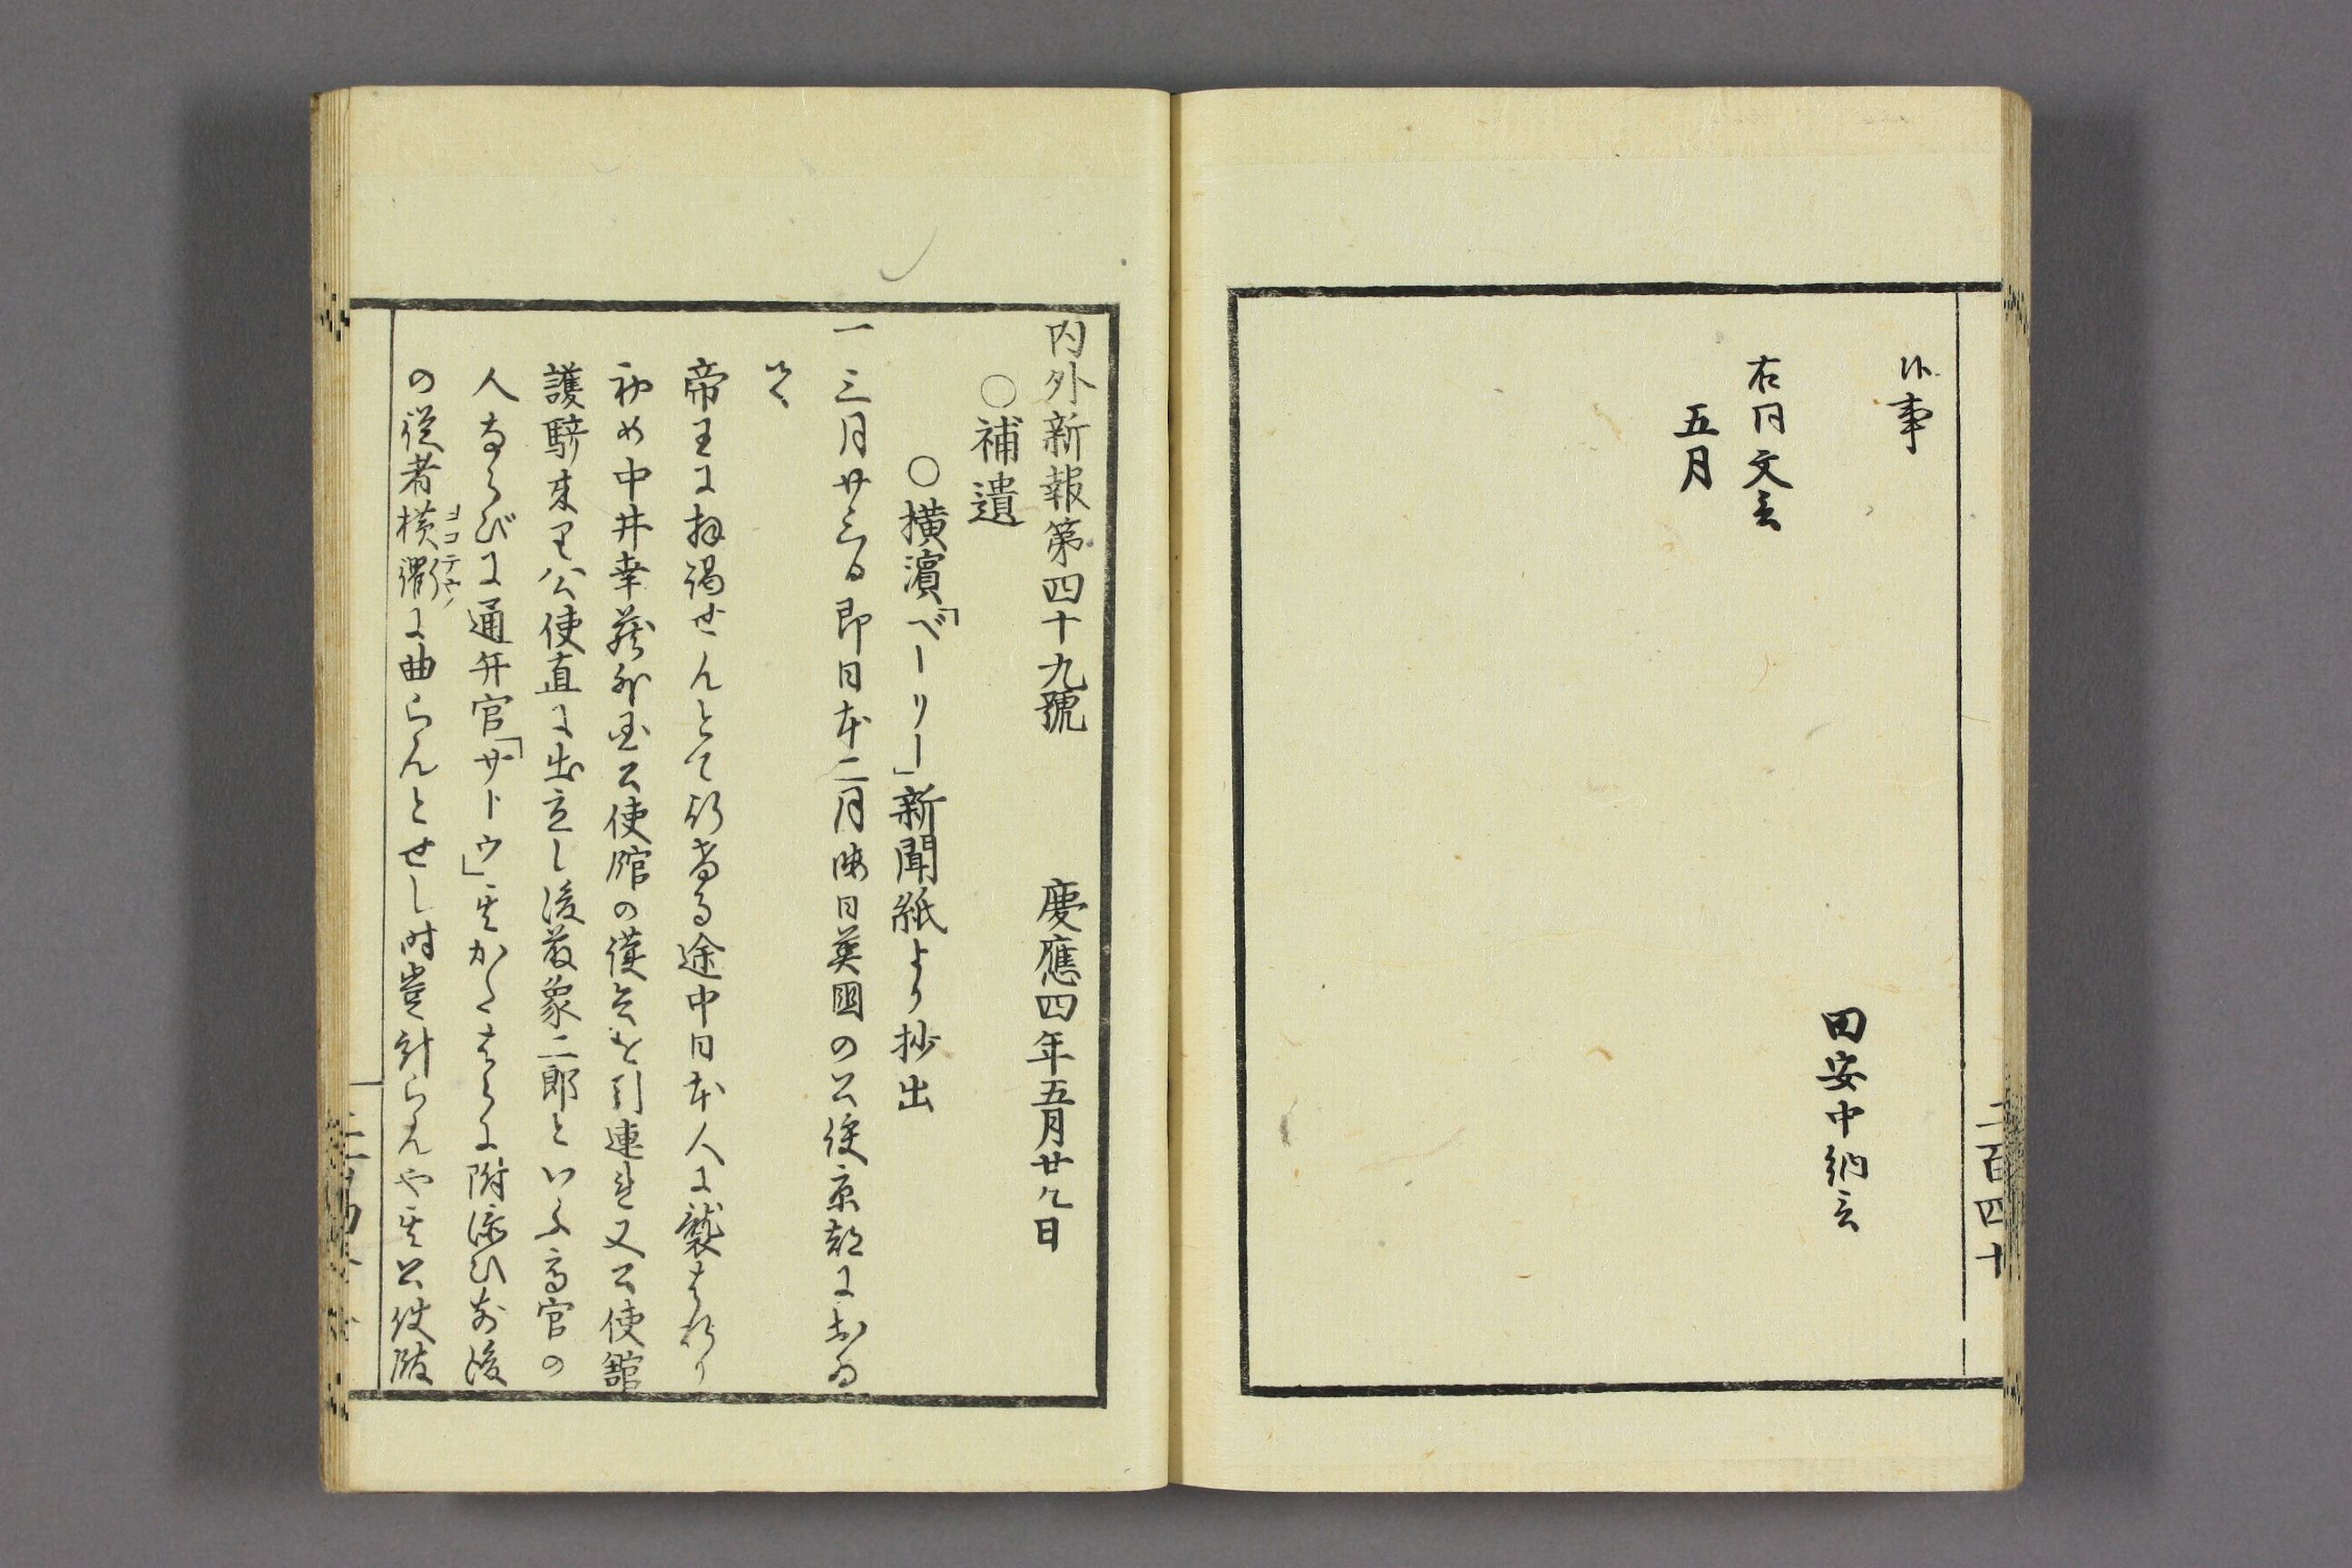 候事
田安中納言
右同文言
五月
二百四十
内外新報第四十九號　慶應四年五月廿九日
○補遺
○横濱「ベーリー」新聞紙より抄出
一三月廿三日即日本二月晦日英國の公使京都に於ゐ
て
帝王に拝謁せんとて行ける途中日本人に襲はれり
初め中井幸藏外國公使館の護兵を引連れ又公使館
護騎来り公使直に出立し後藤象二郎といふ高官の
人ならびに通弁官「サトウ」其かたはらに附添ひ前後
の従者横衢に曲らんとせし時豈計らんや其公使隊
ヨコテウ